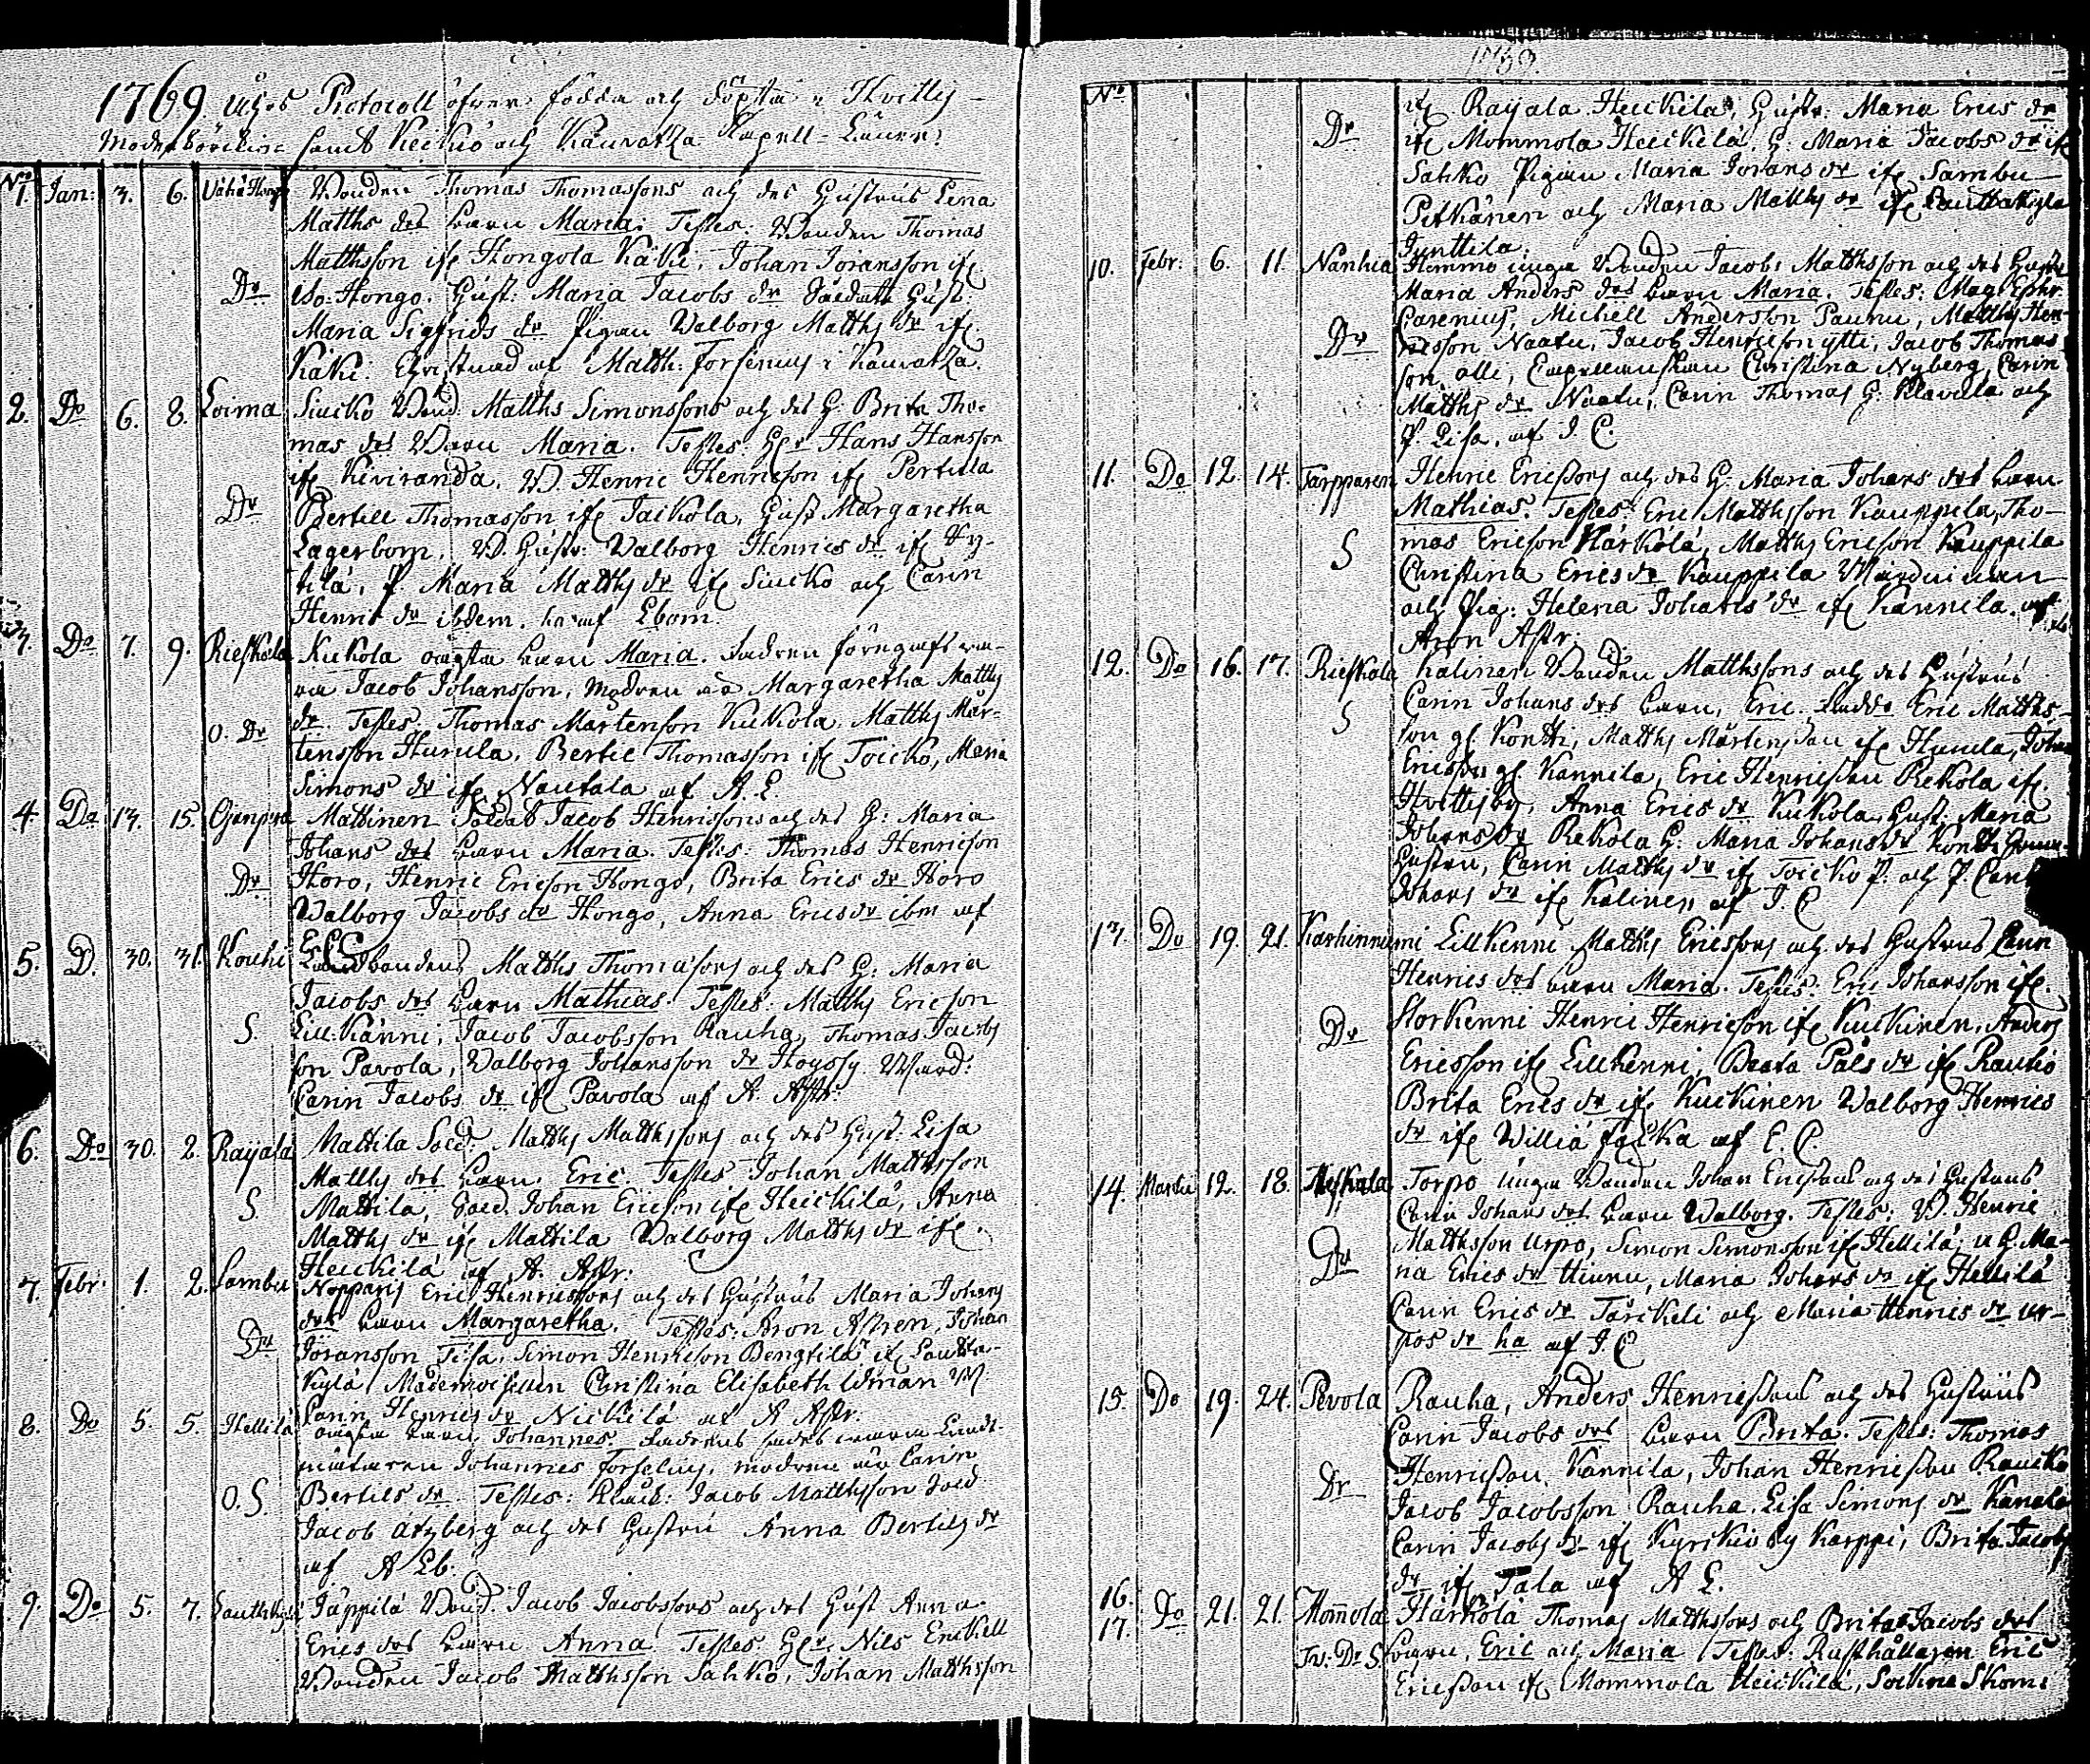 1769 åhrs Protocoll öfwer födda och döpta i Hvittis
Moderkörkian samt Keikiö och Kauvatza Capell-Låner
No
1. Jan: 3. 6. Vähä Hongo Bonden Thomas Thomassons och des Hustrus Lena
Matths dot barn Maria. Testes: Bonden Thomas
Matthsson ifr Hongola Käki, Johan Joransson ifr
Dr Iso-Hongo. Hust: Maria Jacobs dr Soldate Hust:
Maria Sigfrids dr Pigan Valborg Matths dr ifr
Käki: Christnad af Matth: Forsenius i Kauvatza.
2. Do 6. 8. Loima Siucko Bond: Matths Simonssons och des H: Brita Tho-
mas dot Barn Maria. Testes: Hr Hans Hansson
ifr Kiviranda, B. Henric Henricson ifr Pertula
Dr Bertill Thomasson ifr Jaikola, Hust Margaretha
Lagerbom, B. Hustr: Valborg Henrics dr ifr
tilä, P Maria Matths dr ifr Siucko och Carin
Henric dr ibdem. af Ebom.
3. Do 7. 9. Rieskala Kukola oägta barn Maria. Fadren
Jacob Johansson, Modren är Margaretha Matths
O. Dr dr. Testes. Thomas Martenson Kukola. Matths Mår-
tensson Hurula, Bertil Thomasson ifr Toicko, Maria
Simons dr ifr Nautala af A. E.
4. Do 13. 15. Ojanperä Mattinen Soldat Jacob Henricsons och des H: Maria
Johans dot barn Maria. Testes: Thomas Henricson
Dr Horo, Henric Ericson Hongo, Brita Erics dr Horo
Walborg Jacobs dr Hongo, Anna Erics dr ibm af
E. C.
5. D. 30. 31. Kouhi bondens Matths Thomasons och des H: Maria
Jacobs dot barn Mathias. Testes: Matths Ericson
S. Lill: Känni, Jacob Jacobsson Rauha, Thomas Jacobs
son Pavola, Valborg Johansson dr Hoyssy
Carin Jacobs dr ifr Pavola af A. Astr:
6. Do 30. 2. Rayala Mattila Sold: Matths Matthssons och des Hust: Lisa
Matths dot barn. Eric. Testes Johan Matthsson
S. Mattila, Sold. Johan Ericson ifr Heickilä, Anna
Matths dr ifr Mattila Valborg Matths dr ifr.
Heickilä af A. Astr:
7. Febr: 1. 2. Sambu Nopparis Eric Henricssons och des Hustrus Maria Johans
dot barn Margaretha. Testes: Aron Astren, Johan
Dr Joransson Tisa, Simon Henricson Bengtilä ifr Lautta-
kylä, Mademoisellen Christina Elisabeth Idman
Carin Henrics dr Nickilä af A Astr.
8. Do 5. 5. Hellilä oägta barn Johannes. Fadren
Johannes Forselius, modren är Carin
O. S. Bertils dr. Testes: Jacob Matthsson Sold
Jacob Atzberg och des Hustru Anna Bertils dr
af A Eb.
9. Do 5. 7. Lauttakylä Jäppilä Bond. Jacob Jacobssons och des Hust Anna
Erics dot barn Anna Testes Hr: Nils Enckell
Bonden Jacob Matthsson Sahko, Johan Matthsson
No
ifr Rayala Heickila, Hustr: Maria Erics dr
Dr ifr Mommola Heickelä, H: Maria Jacobs dr ifr
Sahko Pigan Maria Jorans dr ifr Sambu
Pitkänen och Maria Matths dr ifr Lauttakyla
Junttila.
10. Febr: 6. 11. Nanhia Himmo unga Bonden Jacobs Matthsson och des Hustr
Maria Anders dot barn Maria. Testes: Mag Ephr.
Casenius, Michell Andersson Paunu, Matths Hen-
Dr ricsson Naatu, Jacob Henricson ytti, Jacob Thomas
son olli, Christina Nyberg, Carin
Matths dr Naatu, Carin Thomas H: Klavula och
P. Lisa, af I. C.
11. Do 12. 14. Tarpparen Henric Ericssons och des H: Maria Johans dot barn
Mathias. Testes Eric Matthsson Kauppila, Tho-
S mas Ericson Härkolä, Matths Ericson Kauppila
Christina Erics dr Kauppila
och Pig: Helena Johans dr ifr Kannila. af
Aron Astr:
12. Do 16. 17. Rieskala Kalinen Bonden Matthssons och des Hustrus
Carin Johans dot barn, Eric. Eric Matths-
S son ifr Kontti, Matths Mårtensson ifr Hurula, Johan
Ericsson ifr Kannila, Eric Henricsson Rekola ifr.
Hvittisby, Anna Erics dr Kukola, Hust: Maria
Johans dr Rekola H: Maria Johans dr Kontti
Hustru, Carin Matths dr ifr Toicko P: och P. Carin
Johans dr ifr Kalinen af I. C
13. Do 19. 21. Karhinniemi Lillkenni Matths Ericssons och des Hustrus Carin
Henrics dot barn Maria. Testes: Eric Johansson ifr.
Dr Storkenni Henric Henricson ifr Kuckinen, Anders
Ericsson ifr Lillkenni, Beata Påls dr ifr Rautio
Brita Erics dr ifr Kuckinen Walborg Henrics
dr ifr Williä af E. C.
14. Martii 12. 18. Torpo unga Bonden Johan Ericssons och des Hustrus
Carin Johans dot barn Walborg. Testes: B. Henric
Dr Matthsson Urpo, Simon Simonsson ifr Hellilä, H. Ma-
ria Erics dr Hiuru, Maria Johans dr ifr Hellilä
Carin Erics dr Tärickeli och Maria Henrics dr Ur-
pos dr ha af I. C
15. Do 19. 24. Pevola Rauha, Anders Henricssons och des Hustrus
Carin Jacobs dot barn Brita. Testes: Thomas
Dr Henricsson Kannila, Johan Henricsson Raucko
Jacob Jacobsson Rauha, Lisa Simons dr Kanala
Carin Jacobs dr ifr Kyrckioby Karppi, Brita Jacobs
dr ifr Tala af A E.
16.
17. Do 21. 21. Mommola Härkölä Thomas Matthssons och Brita Jacobs dot
Tv: Dr S barn, Eric och Maria Testes: Rusthållaren Eric
Ericsson ifr Mommola Heickilä, Sockne Skom: